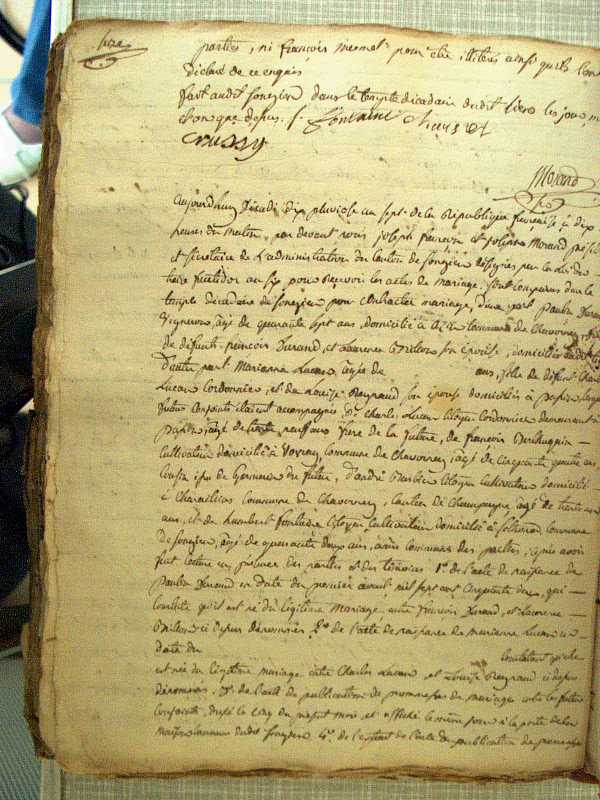 parties, ni françois mermet pour être illitérés ainsi qu'ils l'ont
déclaré de ce enquis
fait audit songieu dans le temple décadaire dudit lieu les jour, m
et an que dessus. f. fontaine
crussy
Morand
aujourdhuy décadi dix pluviose an sept de la République française à dix
heures du matin, par devant nous joseph françois et joseph Morand prési
et sécrétaire de l'administration du canton de songieu désignés par la loi du
fructidor an six pour recevoir les actes de mariage, sont comparus dans le
temple décadaire de songieu pour contracter mariage, d'une part Paulin Durand
vigneron, agé de quarante sept ans, domicilié à commune de chavornay, fils
de défunt françois Durand, et Laurence son épouse, domiciliés audit
d'autre part Marianne Lucun agée de ans, fille de défunt Charles
Lucun cordonnier, et de Louise Reynaud son épouse domiciliés à
futurs conjoints étaient accompagnés de Charles Lucun citoyen cordonnier demeurant à
agé de trente neuf ans frère de la future, de françois
cultivateur domicilié à Vovray, commune de chavornay, agé de cinquante quatre ans,
cousin issu de germain du futur, d'andré citoyen cultivateur domicilié
à commune de chavornay, canton de champagne agé de trente
ans, et de humbert fontaine citoyen cultivateur domicilié à commune
de songieu, agé de quarante deux ans, amis communs des parties; après avoir
fait lecture en présence des parties et des témoins 1°. de l'acte de naissance de
Paulin Durand en date du premier août mil sept cent cinquante deux, qui
constate qu'il est né du légitime mariage entre françois Durand, et Laurence
ci dessus dénommés, 2°. de l'acte de naissance de marianne Lucun en
date du constatant qu'elle
est née du légitime mariage entre Charles Lucun, et Louise Reynaud ci dessus
dénommés, 3°. de l'acte de publication de promesses de mariage entre les futurs
conjoints, dressé le cinq du présent mois et affiché le même jour à la porte de la
maison commune dudit songieu 4°. de l'extrait de l'acte de publication de promesse